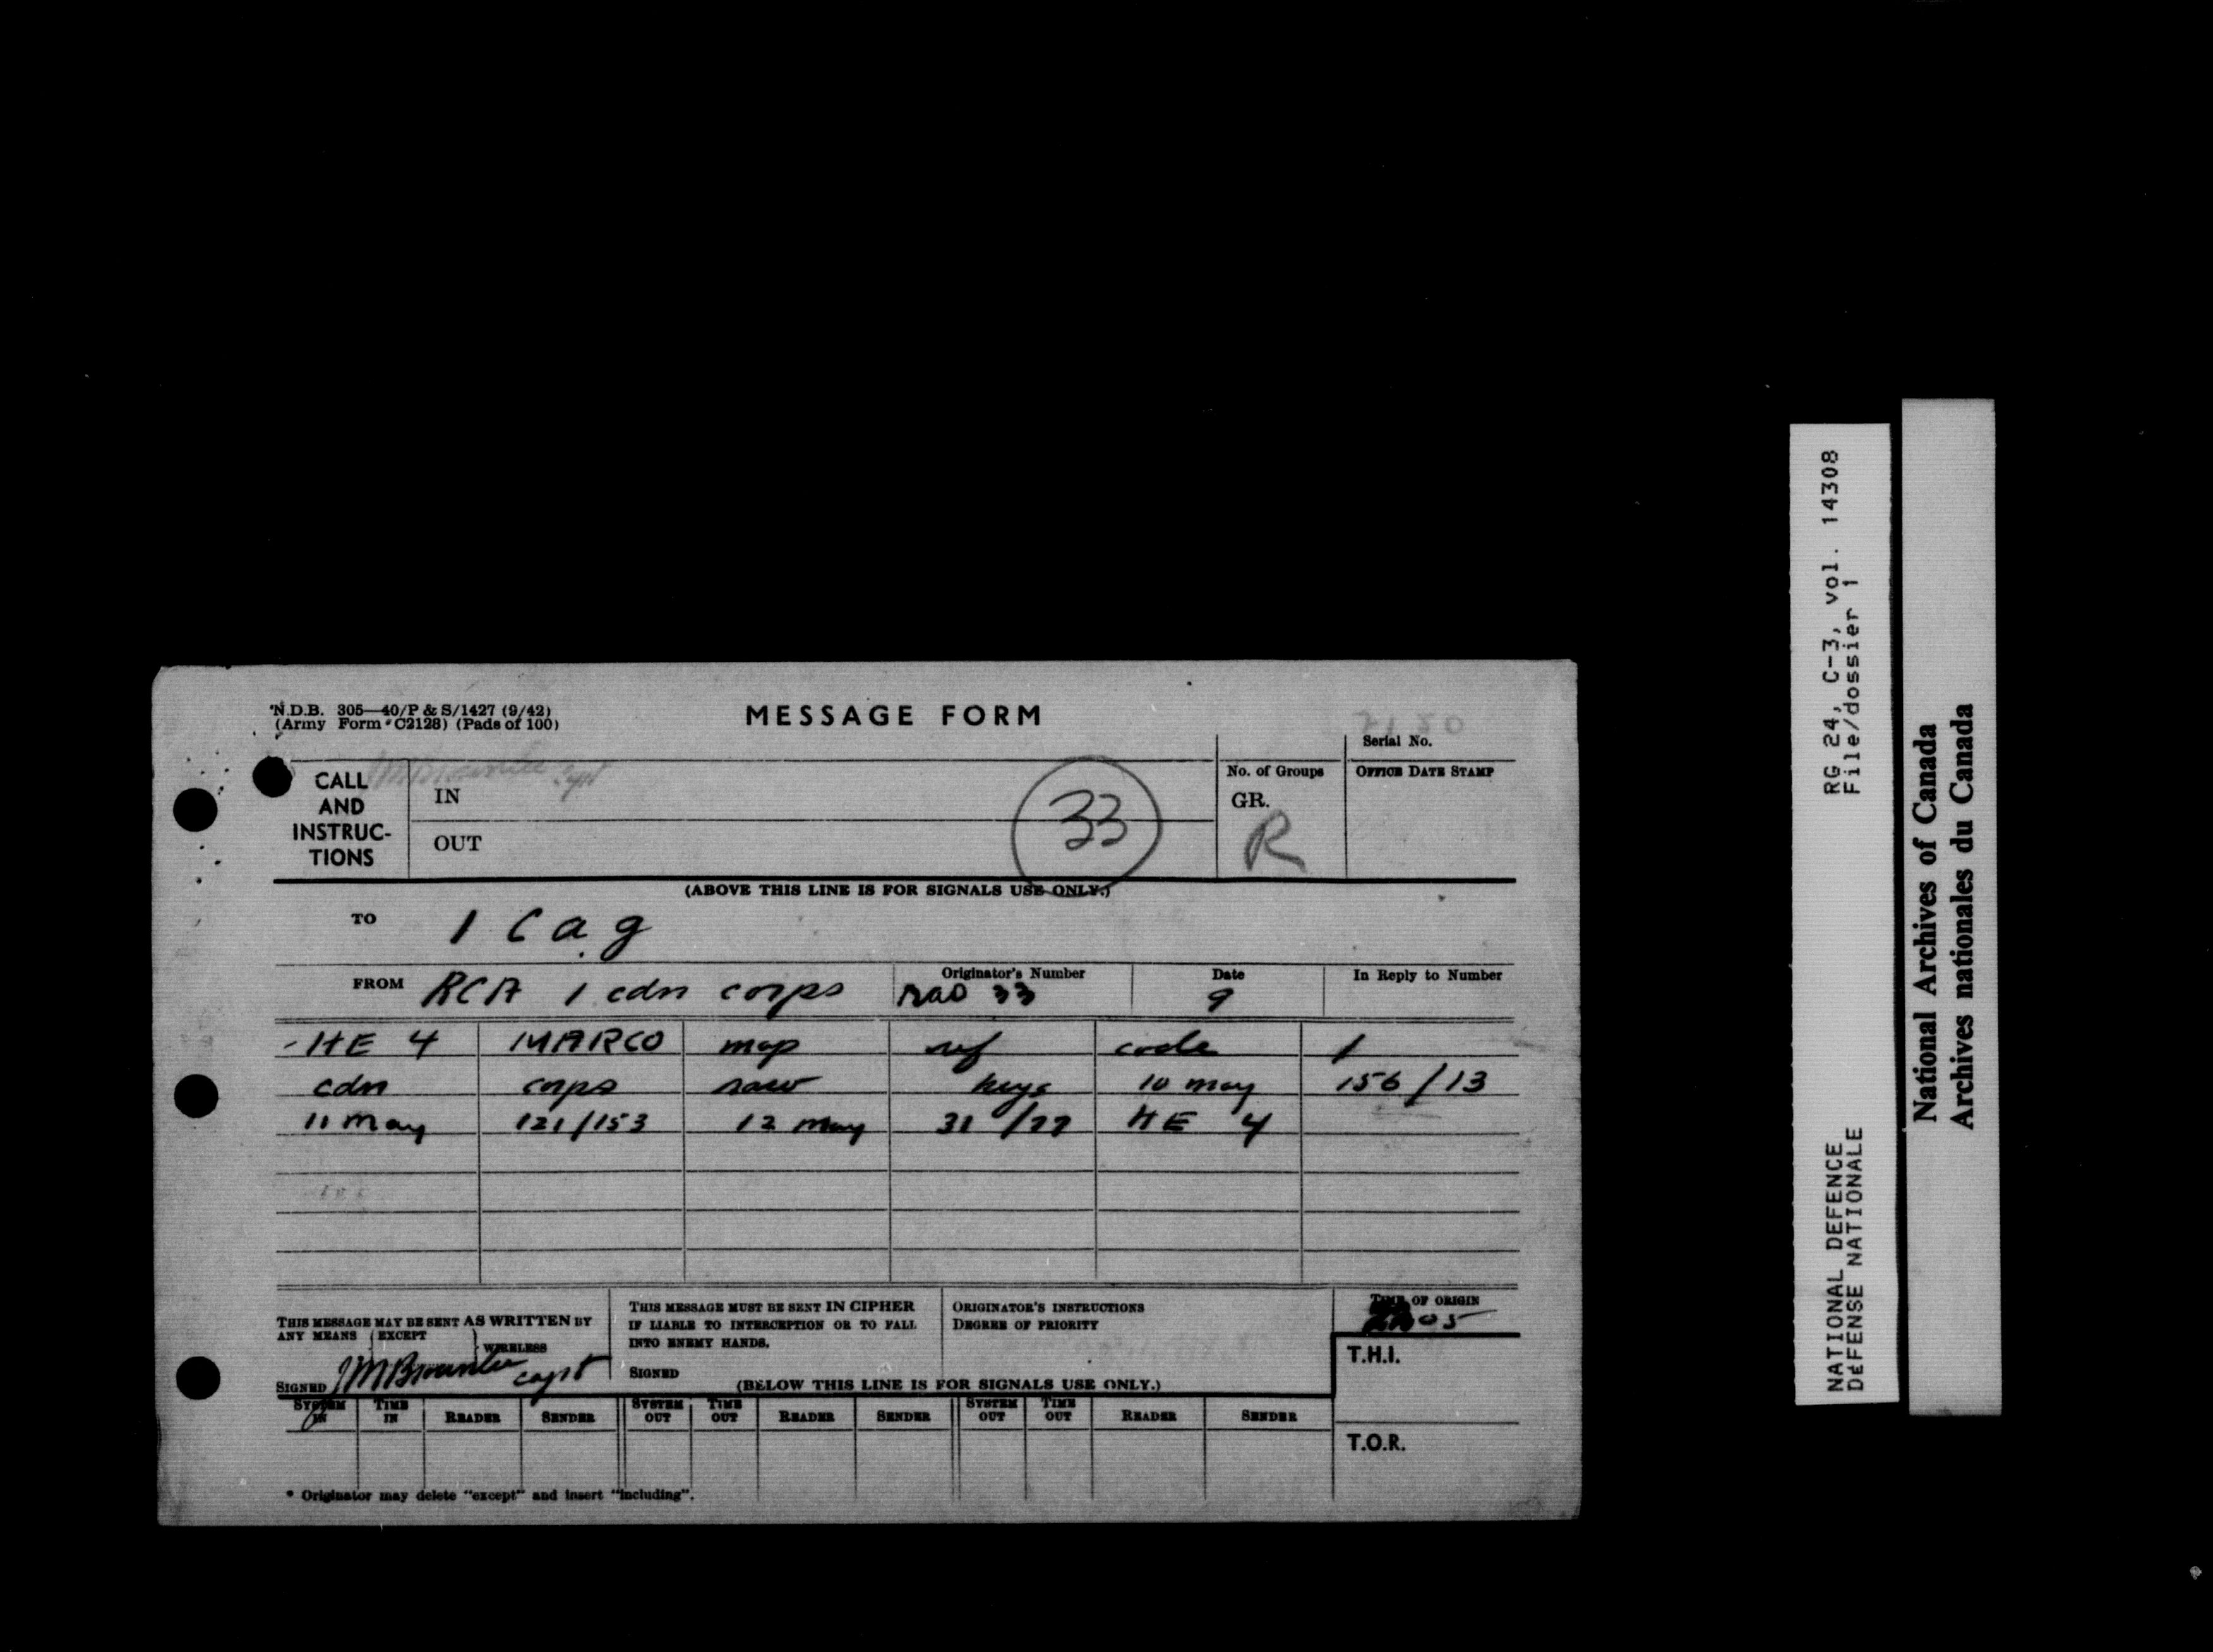 N.D.B. 305—40/P & S/1427 (9/42)
(Army Form C2128) (Pads of 100)
MESSAGE FORM
Serial No.
CALL AND INSTRUC-TIONS
IN
OUT
33
No. of Groups
GR.
R
OFFICE DATE STAMP
(ABOVE THIS LINE IS FOR SIGNALS USE ONLY.)
TO 1 Cag
FROM RCA 1 cdn corps
Originator's Number
rao 33
Date
9
In Reply to Number
HE 4 MARCO map ref code 1
cdn corps keys 10 may 156/13
11 May 121/153 12 May 31/77 HE 4
THIS MESSAGE MAY BE SENT AS WRITTEN BY
ANY MEANS EXCEPT
WIRELESS
SIGNED capt
THIS MESSAGE MUST BE SENT IN CIPHER
IF LIABLE TO INTERCEPTION OR TO FALL
INTO ENEMY HANDS.
SIGNED
ORIGINATOR'S INSTRUCTIONS
DEGREE OF PRIORITY
TIME OF ORIGIN
05
T.H.I.
(BELOW THIS LINE IS FOR SIGNALS USE ONLY.)
SYSTEM IN TIME IN READER SENDER SYSTEM OUT TIME OUT READER SENDER SYSTEM OUT TIME OUT READER SENDER
T.O.R.
* Originator may delete "except" and insert "including".
NATIONAL DEFENCE RG 24, C-3, vol. 14308
DEFENSE NATIONALE File/dossier 1
National Archives of Canada
Archives nationales du Canada